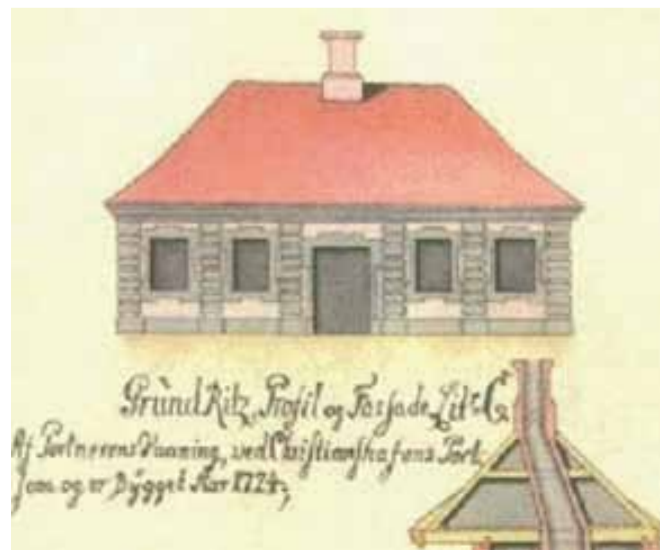 Grund Ritz, Profil og Fassade, Litr: C,
Af Portnerens Vaaning, ved Christianshafens Port,
som og er Bÿgget Aar 1724;